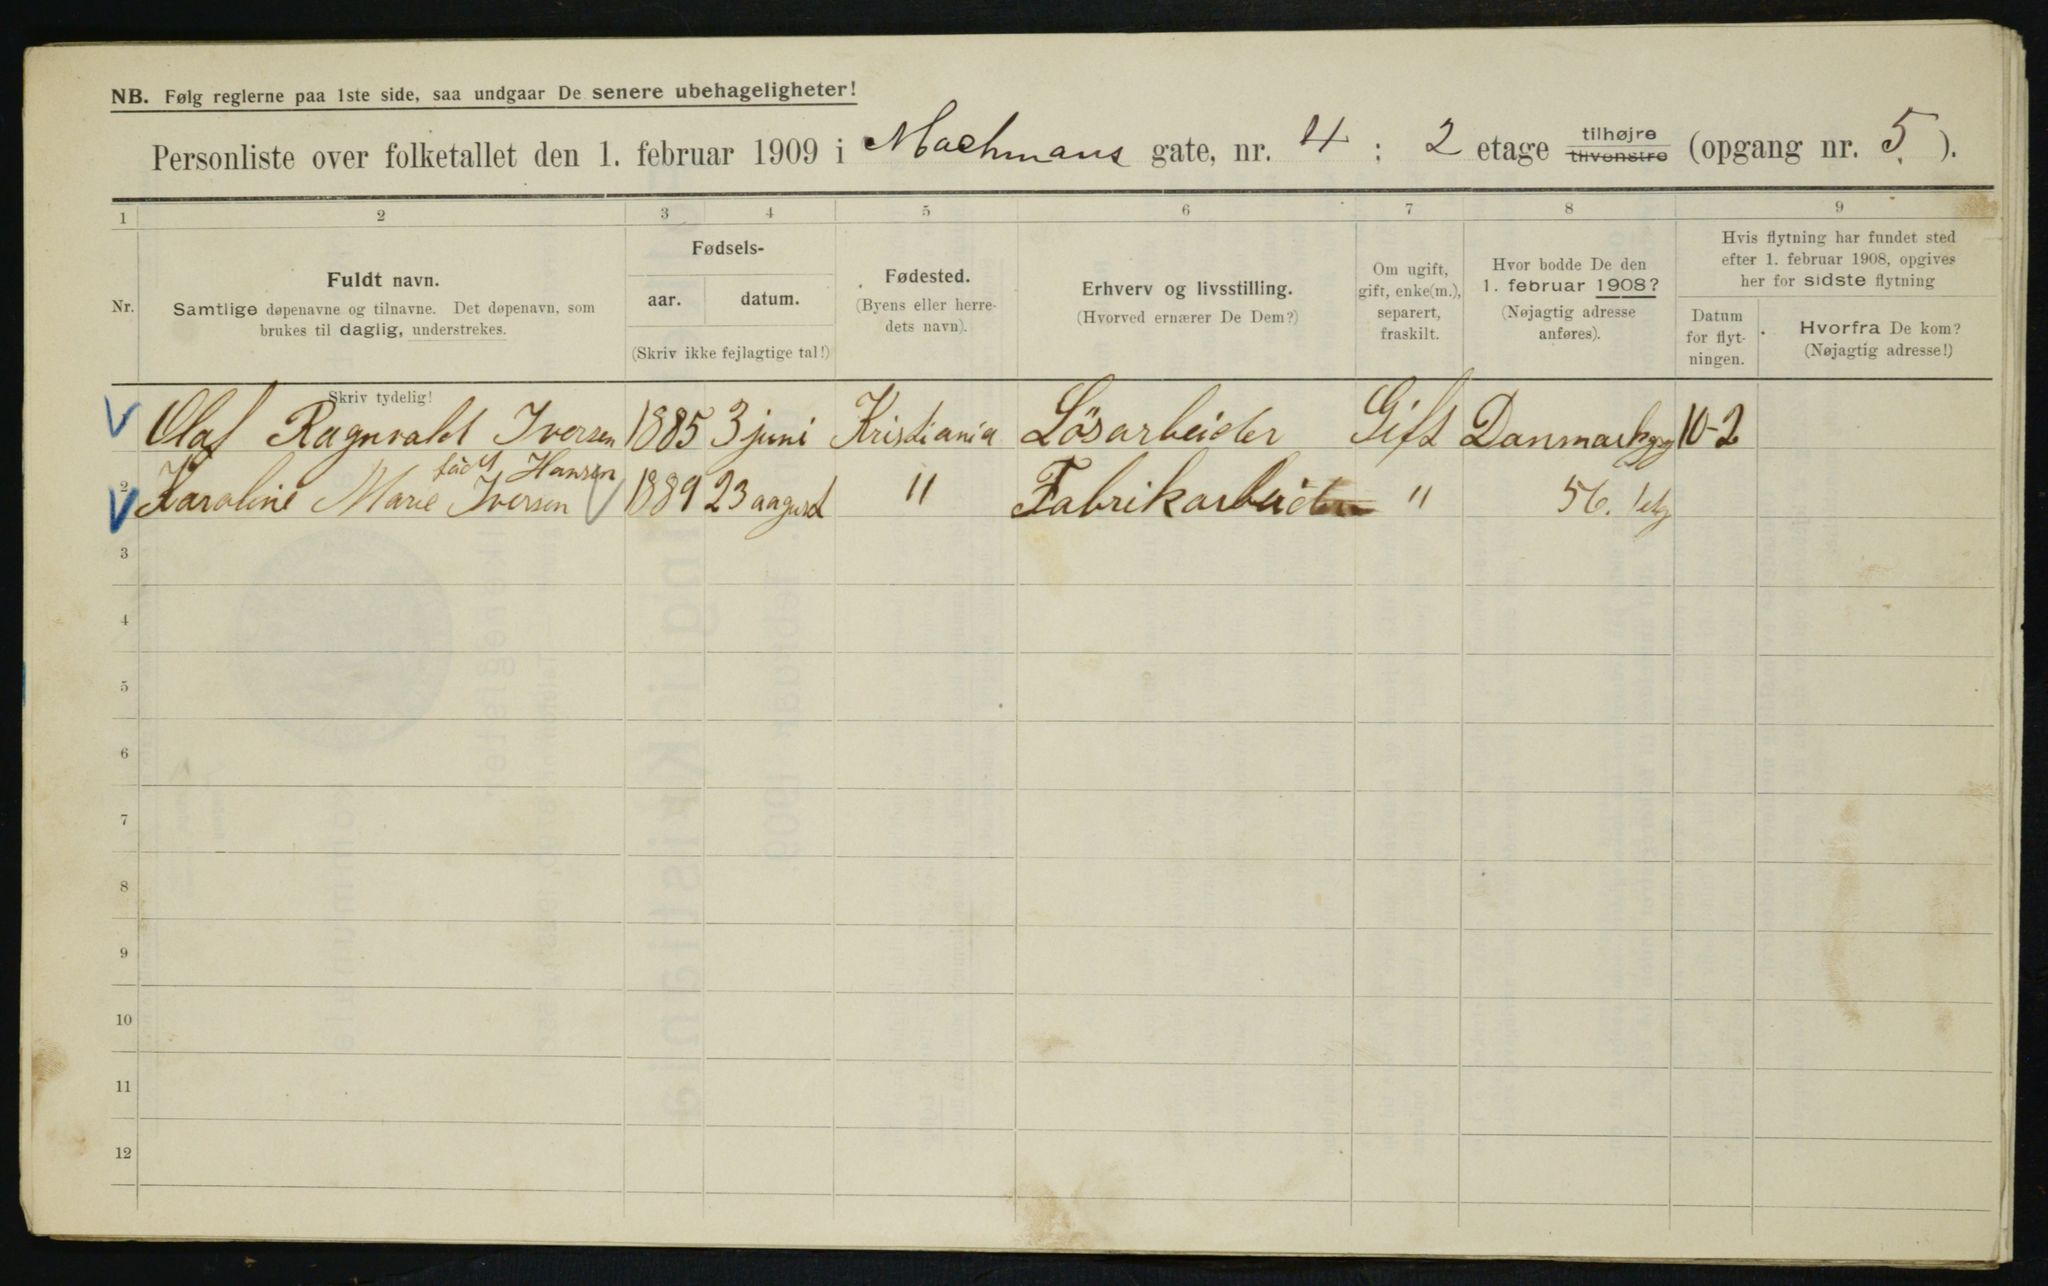 NB. Følg reglerne paa 1ste side, saa undgaar De senere ubehageligheter!
Personliste over folketallet den 1. februar 1909 i Marhmans gate, nr. 4 : 2 etage tilhøjre tilvenstre (opgang nr. 5 ).
1 2 3 4 5 6 7 8 9
Nr.
Fuldt navn.
Samtlige døpenavne og tilnavne. Det døpenavn, som
brukes til daglig, understrekes.
Skriv tydelig!
Fødsels-
aar. datum.
(Skriv ikke fejlagtige tal!)
Fødested.
(Byens eller herre-
dets navn).
Erhverv og livsstilling.
(Hvorved ernærer De Dem?)
Om ugift,
gift, enke(m.),
separert,
fraskilt.
Hvor bodde De den
1. februar 1908?
(Nøjagtig adresse
anføres).
Hvis flytning har fundet sted
efter 1. februar 1908, opgives
her for sidste flytning
Datum
for flyt-
ningen.
Hvorfra De kom?
(Nøjagtig adresse!)
Olaf Ragnvald Iversen 1885 3 juni Kristiania Lösarbeider Gift Danmarkgg 10-2
født Hansen
2 Karoline Marie Iversen 1889 23 august " Fabrikarbeider " 56. 1 etg
3
4
5
6
7
8
9
10
11
12